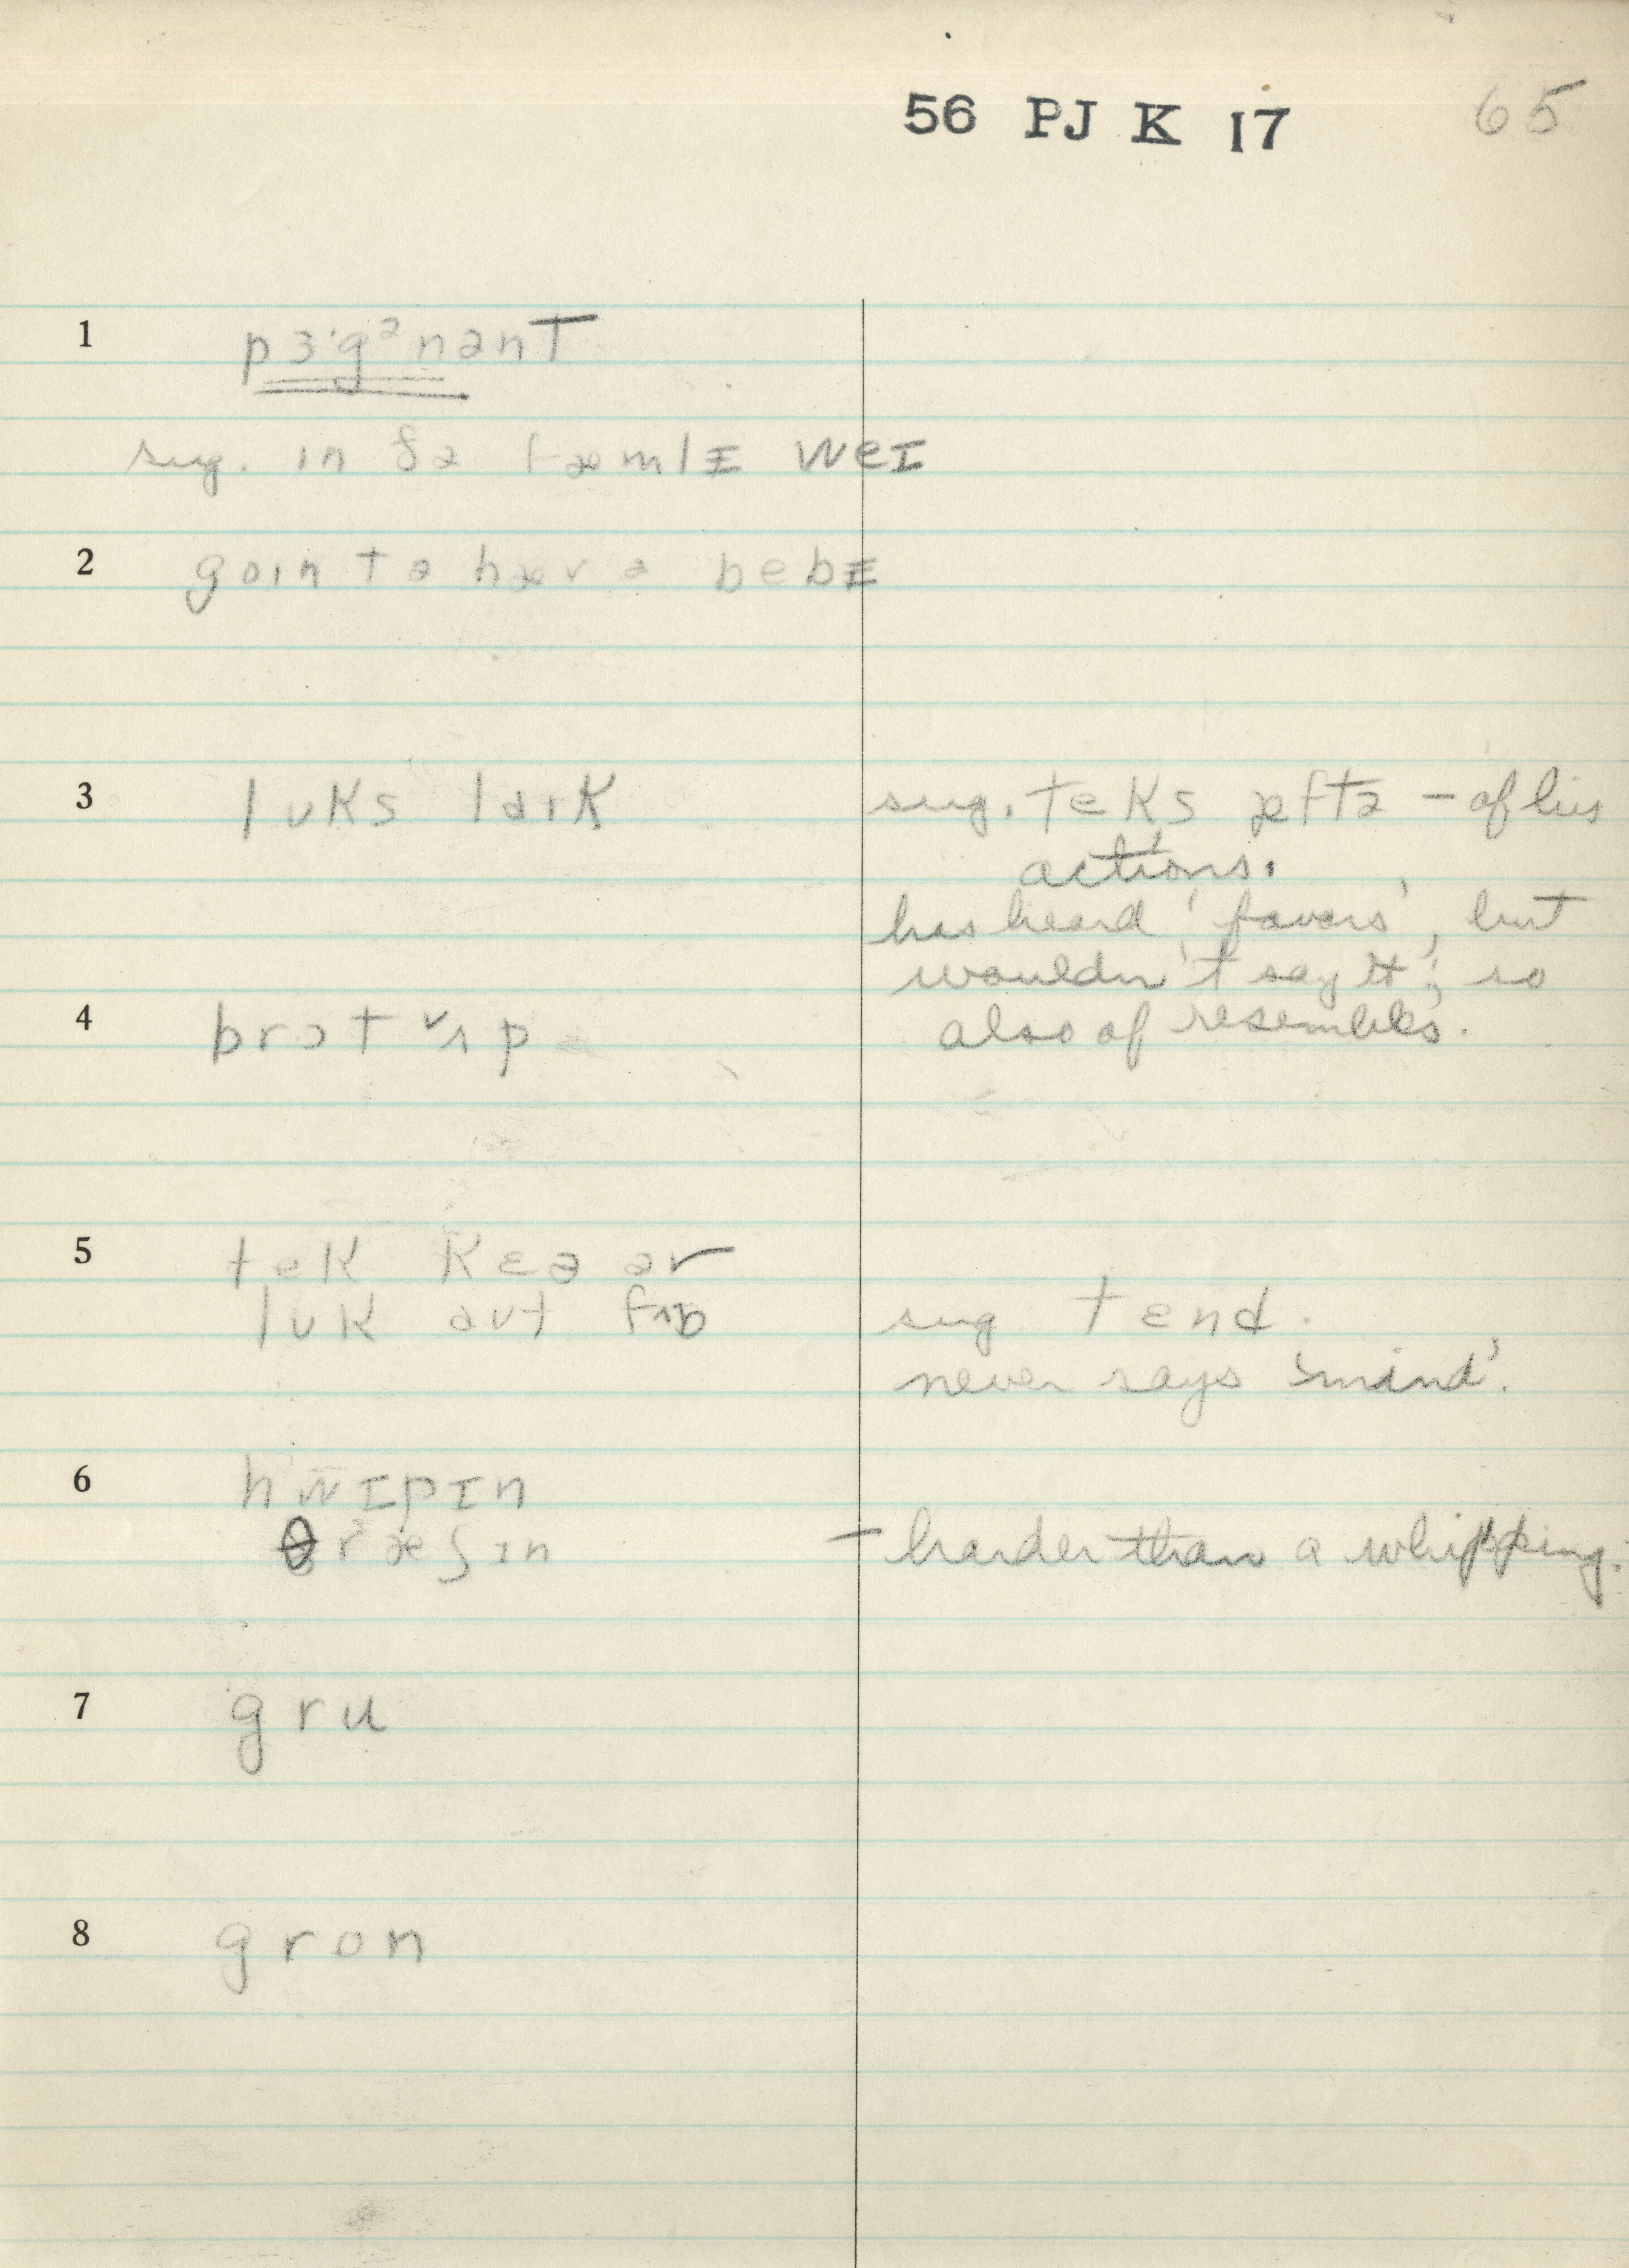 56 PJ K 17 65
1 pɜ·gᵊnənt
sug. in ðə fæmlɪ weɪ
2 goɪn tə hæv ə bebɪ
3 lʊks laɪk sug. teks æftə – of his
actions.
has heard 'favors', but
wouldn't say it; so
4 brɔt ʌp also of resembles.
5 tek kɛə əv
lʊk aʊt fɚ sug tɛnd.
never says 'mind'.
6 hwɪpɪn
θræʃɪn – harder than a whipping.
7 gru
8 gron